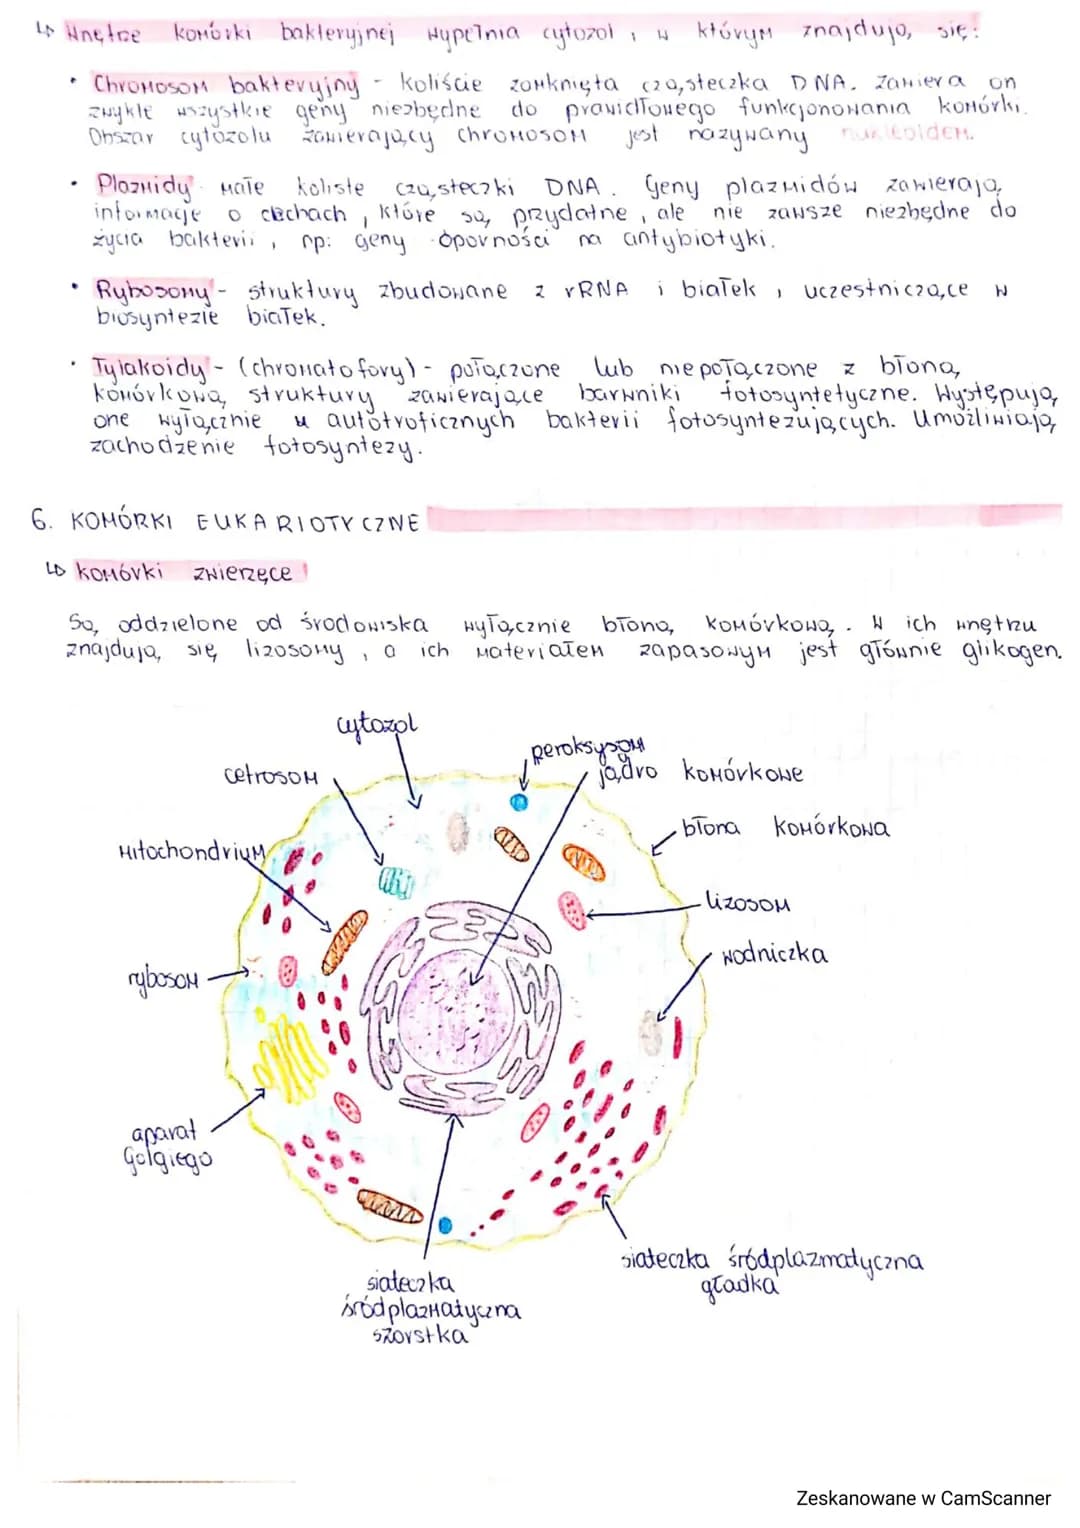 ↳ Wnętrze komórki bakteryjnej wypełnia cytozol, w którym znajdują się:
• Chromosom bakteryjny - koliście zamknięta cząsteczka DNA. Zawiera on
zwykle wszystkie geny niezbędne do prawidłowego funkcjonowania komórki.
Obszar cytozolu zawierający chromosom jest nazywany nukleoidem.
• Plazmidy - małe koliste cząsteczki DNA. Geny plazmidów zawierają
informacje o cechach, które są przydatne, ale nie zawsze niezbędne do
życia bakterii, np: geny oporności na antybiotyki.
• Rybosomy - struktury zbudowane z rRNA i białek, uczestniczące w
biosyntezie białek.
• Tylakoidy - (chromatofory) - połączone lub niepołączone z błoną
komórkową struktury zawierające barwniki fotosyntetyczne. Występują
one wyłącznie u autotroficznych bakterii fotosyntezujących. Umożliwiają
zachodzenie fotosyntezy.
6. KOMÓRKI EUKARIOTYCZNE
↳ komórki zwierzęce
Są oddzielone od środowiska wyłącznie błoną komórkową. W ich wnętrzu
znajdują się lizosomy, a ich materiałem zapasowym jest głównie glikogen.
cytozol
peroksysom
cetrosom
jądro komórkowe
błona komórkowa
mitochondrium
lizosom
wodniczka
rybosom
aparat
Golgiego
siateczka
śródplazmatyczna
szorstka
siateczka śródplazmatyczna
gładka
Zeskanowane w CamScanner